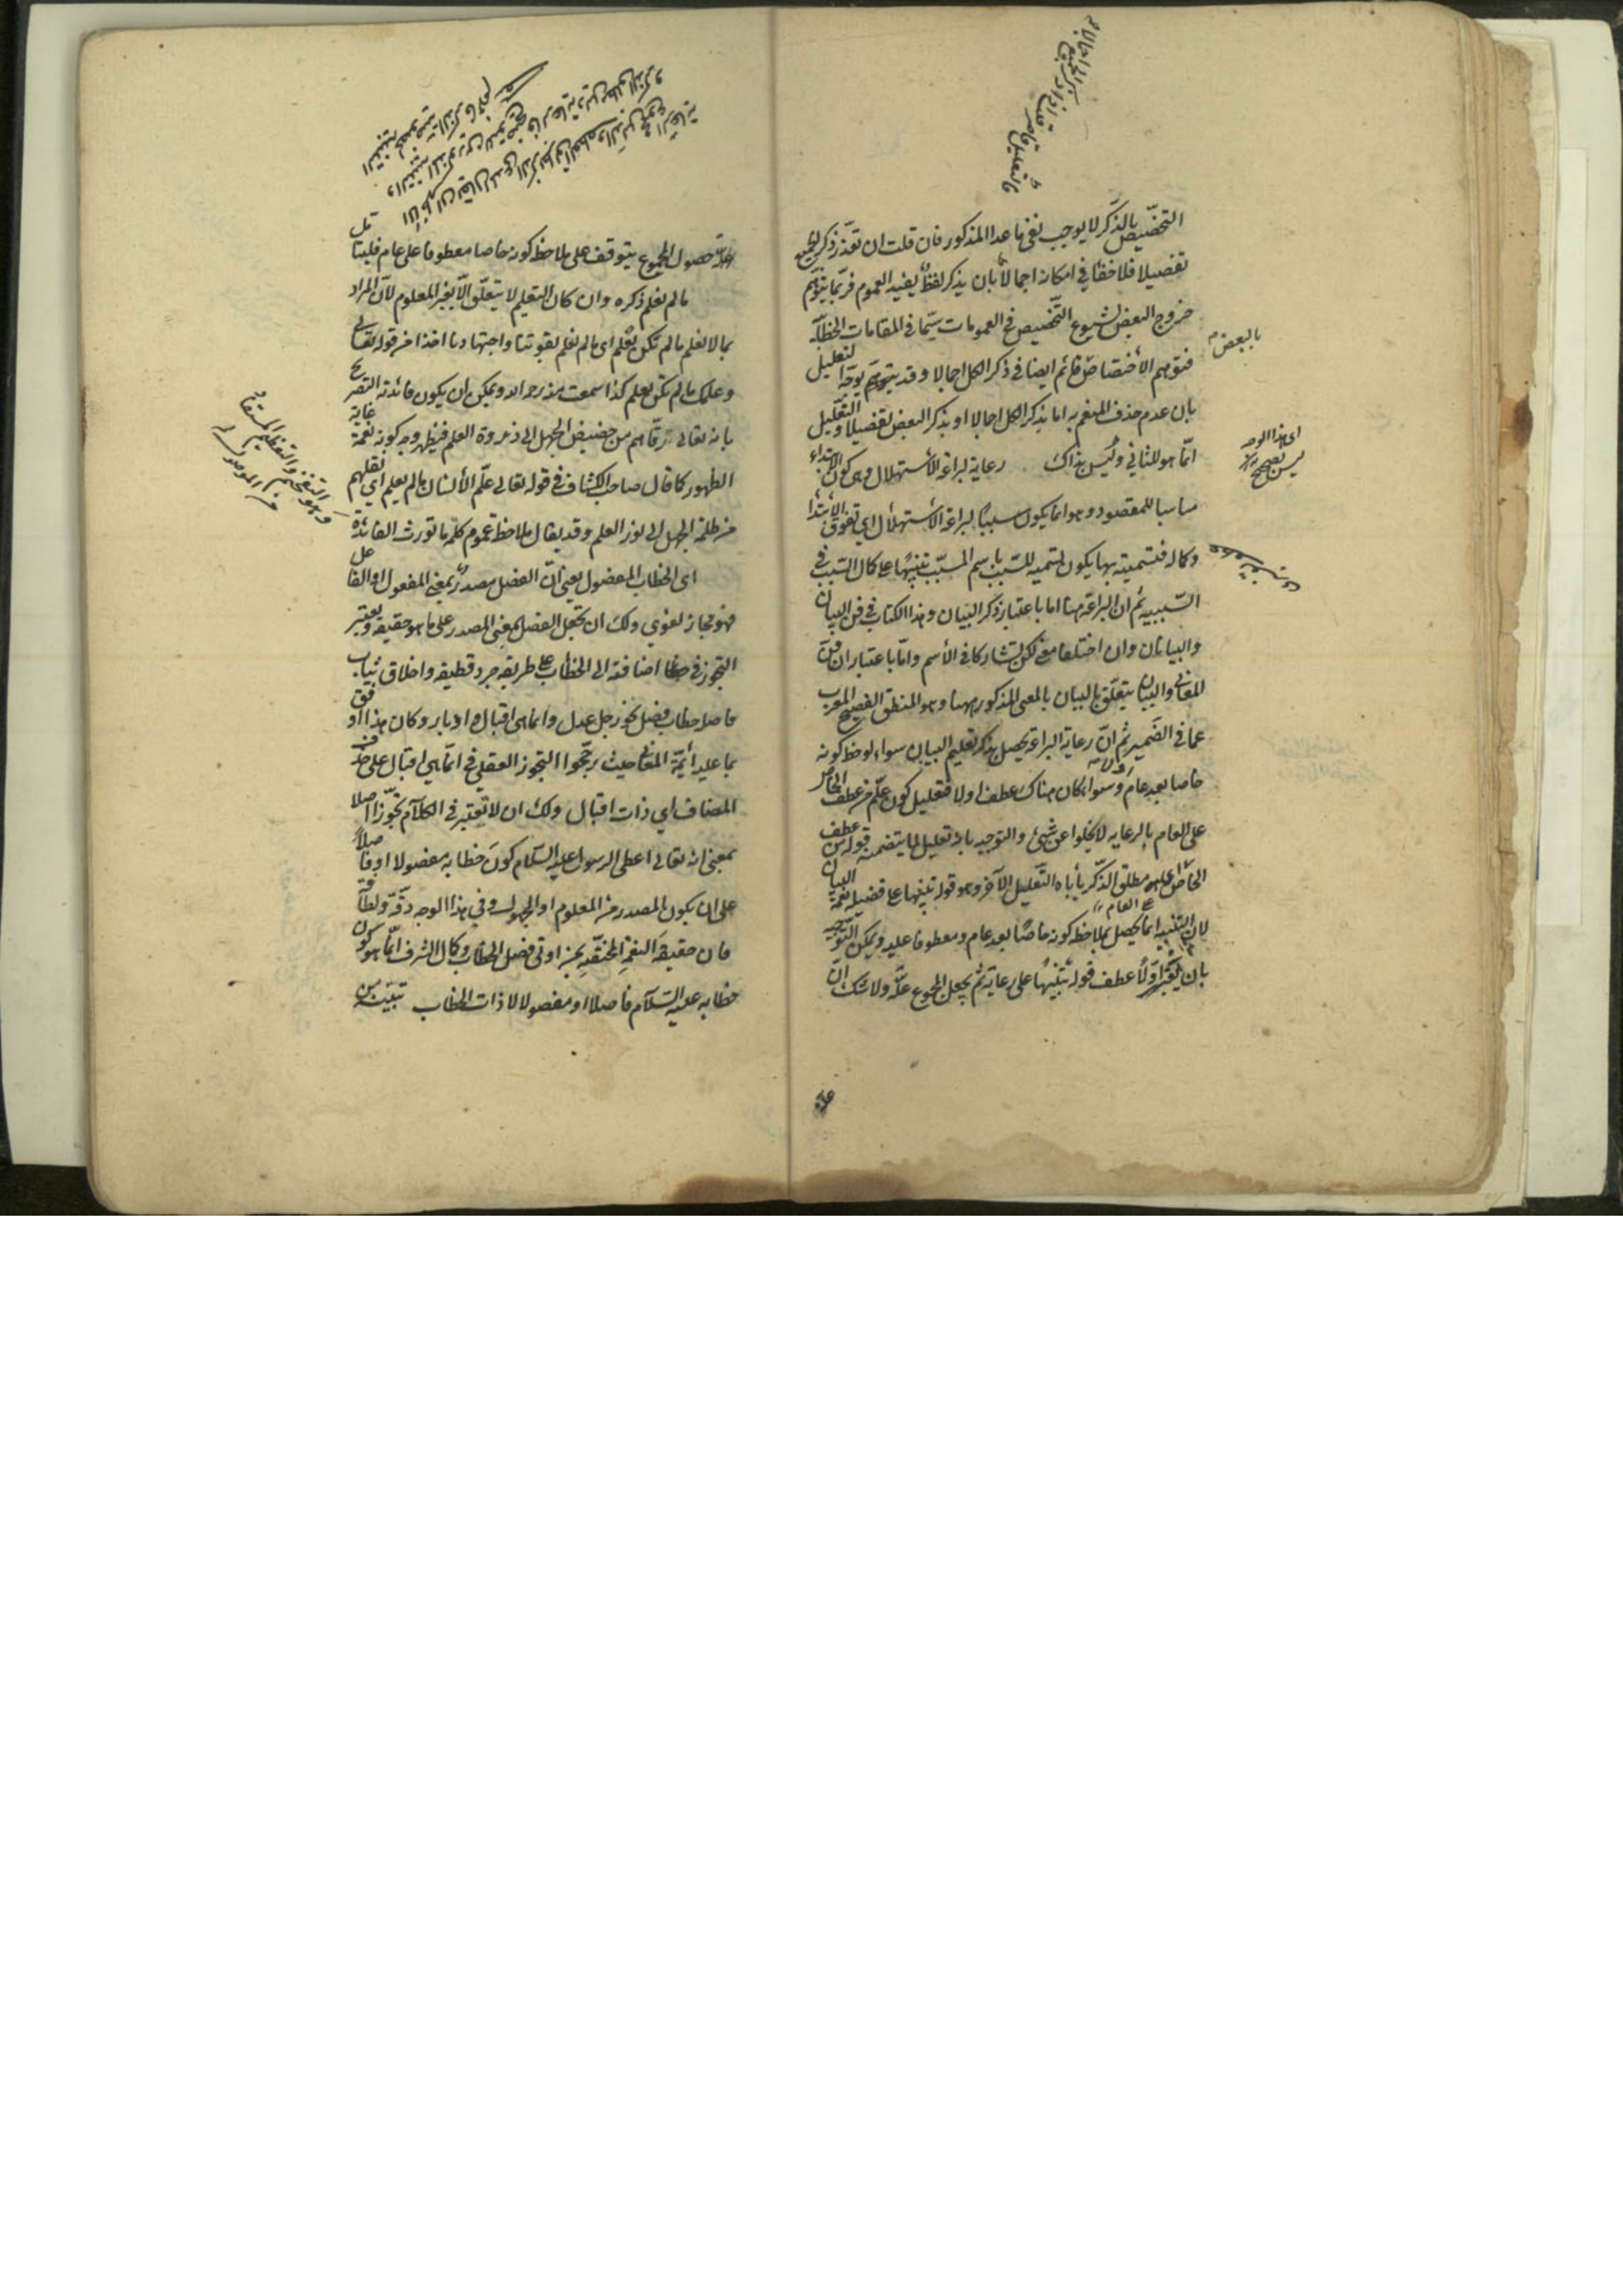 التخصيص بالذكر لا يوجب نفي ما عدا المذكور فان قلت ان تعذر ذكر الجميع
تفصيلا فلا خفاء في امكانه اجمالا بان يذكر لفظ يفيد العموم فربما يتوهم
خروج البعض لشيوع التخصيص في العمومات سيما في المقامات الخطابية
فتوهم الاختصاص قائم ايضا في ذكر الكل اجمالا وقد يتوهم توجه التعليل
بان عدم حذف المنعم به اما بذكر الكل اجمالا او بذكر البعض تفصيلا والتعليل
انما هو للثاني وليس بذاك رعاية لبراعة الاستهلال وهي كون الابتداء
مناسبا للمقصود وهو انما يكون سببا لبراعة الاستهلال اي تفوق الابتداء
وكماله فتسميته بها يكون تسمية للسبب باسم المسبب تنبيها على كمال السبب في
السببية ثم ان البراعة هنا اما باعتبار ذكر البيان وهذا الكتاب في فن البيان
والبيانان وان اختلفا معنى لكن تشاركا في الاسم واما باعتبار ان فن
المعاني والبيان يتعلق بالبيان بالمعنى المذكور ههنا وهو المنطق الفصيح المعرب
عما في الضمير ثم ان رعاية البراعة يحصل بذكر تعليم البيان سواء لوحظ كونه
خاصا بعد عام او لا وسواء كان هناك عطف او لا فتعليل كون علم من عطف الخاص
على العام بالرعاية لا يخلوا عن شيئ والتوجيه بانه تعليل لما يتضمنه قوله من عطف
الخاص على العام مطلق الذكر يأباه التعليل الآخر وهو قوله تنبيها على فضيلة نعمة البيان
لان التنبيه انما يحصل بملاحظة كونه خاصا بعد عام ومعطوفا عليه ويمكن التوجيه
بان يعتبر اولا عطف قوله تنبيها على رعاية ثم يجعل المجموع علة ولا شك ان
بالبعض
اي هذا الوجه
ليس بصحيح
علة حصول المجموع يتوقف على ملاحظة كونه خاصا معطوفا على عام فليتأمل
ما لم نعلم ذكره وان كان التعليم لا يتعلق الا بغير المعلوم لان المراد
بما لا نعلم ما لم نكن نعلم اي ما لم نعلم بقوتنا واجتهادنا اخذا من قوله تعالى
وعلمك ما لم تكن تعلم كذا سمعت منه رحمه الله ويمكن ان يكون فائدته التصريح
بانه تعالى رقاهم من حضيض الجهل الى ذروة العلم فيظهر وجه كونه نعمة غاية
الظهور كما قال صاحب الكشاف في قوله تعالى علم الانسان ما لم يعلم اي نقلهم
من ظلمة الجهل الى نور العلم وقد يقال ملاحظة عموم كلمة ما تورث الفائدة
اي الخطاب المفصول يعني ان الفصل مصدر بمعنى المفعول او الفاعل
فهو مجاز لغوي ولك ان تجعل الفصل بمعنى المصدر على ما هو حقيقة ويعتبر
التجوز في اضافته الى الخطاب على طريقة جرد قطيفة واخلاق ثياب
حاصله خطاب فصل نحو رجل عدل وانما هي اقبال وادبار وكان هذا اوفق
بما عليه ائمة المعاني حيث رجحوا التجوز العقلي في انما هي اقبال على حذف
المضاف اي ذات اقبال ولك ان لا تعتبر في الكلام تجوزا اصلا
بمعنى انه تعالى اعطى الرسول عليه السلام كون خطابه مفصولا او فاصلا
على ان يكون المصدر من المعلوم او المجهول وفي هذا الوجه دقة ولطافة
فان حقيقة النعمة المختصة بمن اوتي فصل الخطاب وكمال الشرف انما هو كون
خطابه عليه السلام فاصلا او مفصولا لا ذات الخطاب تبينه من